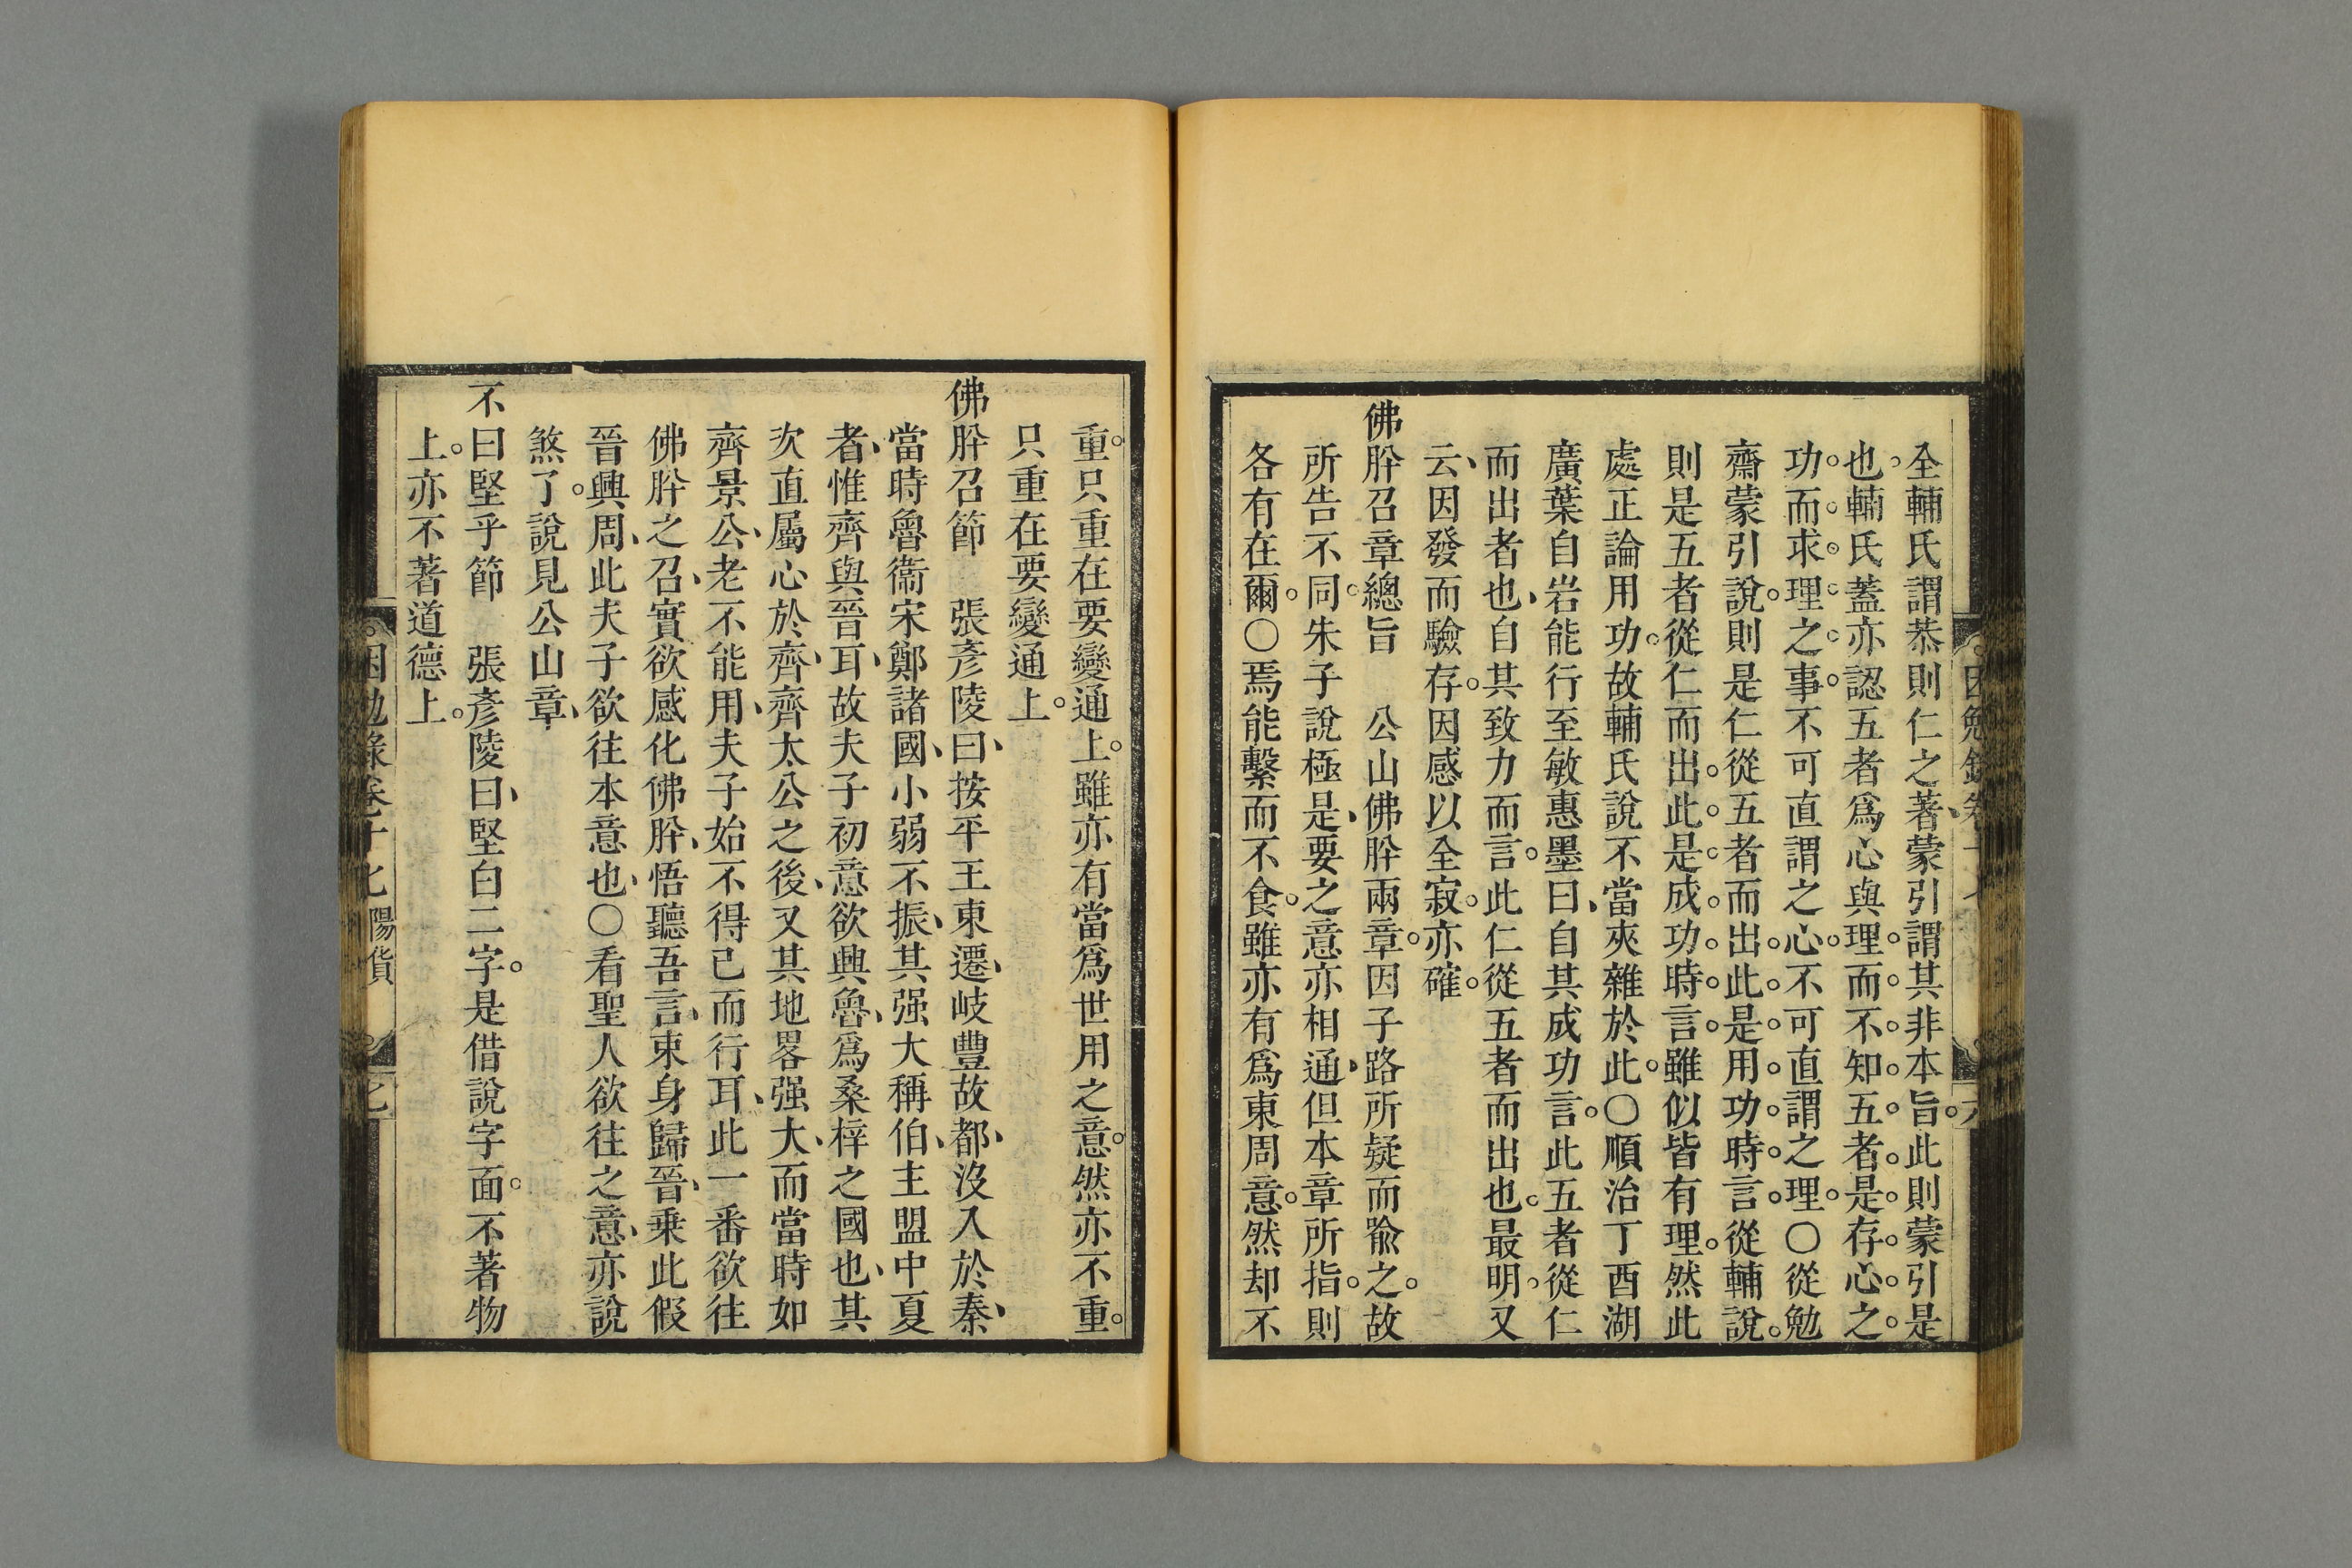 全輔氏謂恭則仁之著蒙引謂其非本旨此則蒙引是
也輔氏蓋亦認五者爲心與理而不知五者是存心之
功而求理之事不可直謂之心不可直謂之理○從勉
齋蒙引說則是仁從五者而出此是用功時言從輔說
則是五者從仁而出此是成功時言雖似皆有理然此
處正論用功故輔氏說不當夾雜於此○順治丁酉湖
廣葉自岩能行至敏惠墨曰自其成功言此五者從仁
而出者也自其致力而言此仁從五者而出也最明又
云因發而驗存因感以全寂亦確
佛肸召章總旨　公山佛肸兩章因子路所疑而喩之故
所告不同朱子說極是要之意亦相通但本章所指則
各有在爾○焉能繫而不食雖亦有爲東周意然却不
重只重在要變通上雖亦有當爲世用之意然亦不重
只重在要變通上
佛肸召節　張彥陵曰按平王東遷岐豐故都沒入於秦
當時魯衞宋鄭諸國小弱不振其强大稱伯主盟中夏
者惟齊與晉耳故夫子初意欲興魯爲桑梓之國也其
次直屬心於齊齊太公之後又其地畧强大而當時如
齊景公老不能用夫子始不得已而行耳此一番欲往
佛肸之召實欲感化佛肸悟聽吾言束身歸晉乗此假
晉興周此夫子欲往本意也○看聖人欲往之意亦說
煞了說見公山章
不曰堅乎節　張彥陵曰堅白二字是借說字面不著物
上亦不著道德上
困勉錄卷十七 陽貨 七